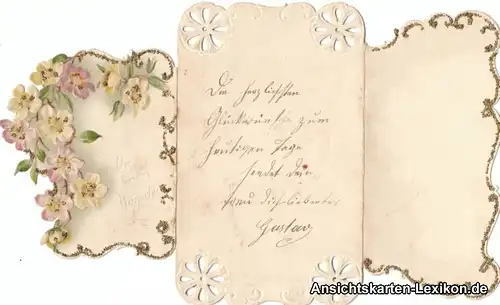 Die herzlichsten
Glückwünsche zum
heutigen Tage
sendet dein
Dich liebender
Gustav
Ansichtskarten-Lexikon.de